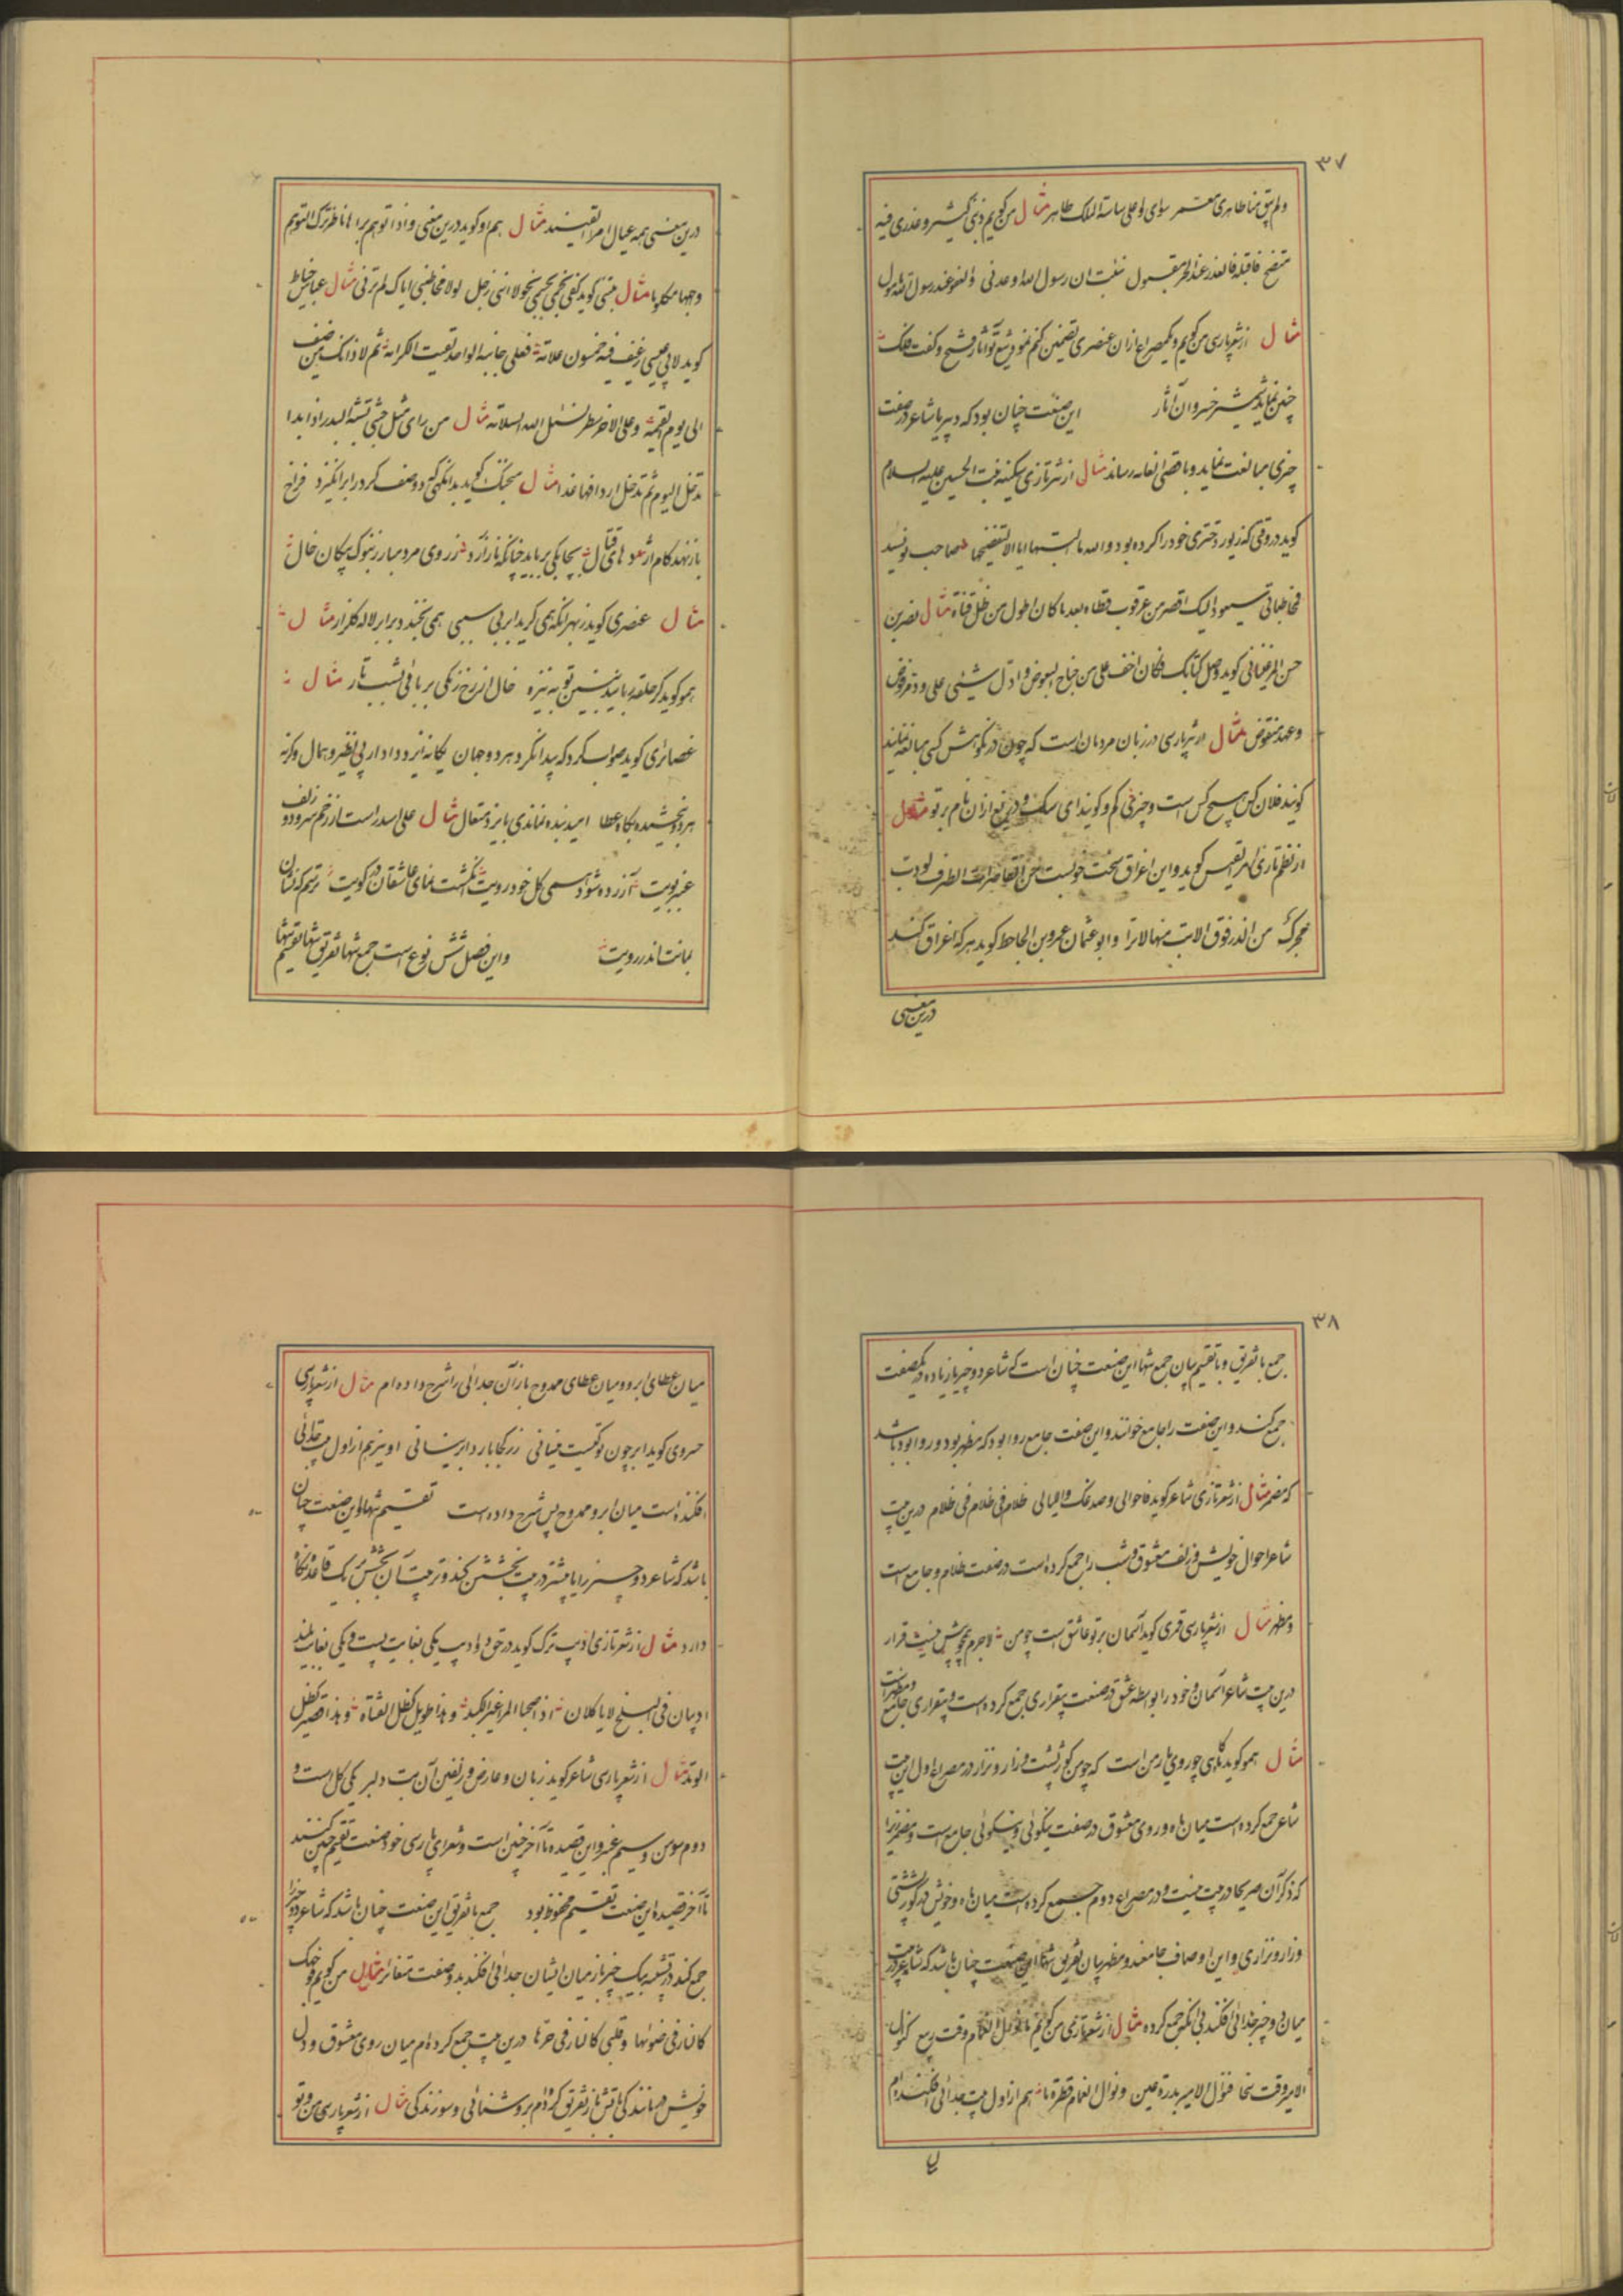 ٣٧
ولم یبق منا طاهری معسر سوی ولعلی ساسة الملک طاهر مثال من کویم ذنبی کبیر وعذری فیه
متضح فاقبله فالعذر عند الحر مقبول نبئت ان رسول الله اوعدنی والعفو عند رسول الله مأمول
مثال از شعر پارسی من کویم ویکمصراع از ان عنصری تضمین کنم نمود تیغ تو آثار فتح وکفت فلک
چنین نماید شمشیر خسروان آثار این صنعت چنان بود که دبیر یا شاعر در صفت
چیزی مبالغت نماید وباقصی الغایه رساند مثال از نثر تازی سکینه بنت الحسین علیه السلام
کوید در وقتی که زیور دختری خود را کرده بود والله ما البستها ایاه الا لتفضحها صاحب نویسد
حسن المرغینانی کوید وصل کتابک فکان اخف علی من جناح البعوض وادل شیئی علی ود مرفوض
وعهد منقوض مثال از نثر پارسی در زبان مردمان است که چون در نکوهش کسی مبالغه نمایند
کویند فلان کس هیچ کس است وچیزی کم وکویند ای سک ودریغ از ان نام بر تو مثال
از نظم تازی امرء القیس کوید واین اغراق سخت خوبست من القاصرات الطرف لو دب
محرک من الذر فوق الاتب منها لاثرا وابو عثمان عمرو بن الجاحظ کوید هر که اغراق کند
درین معنی
درین معنی همه عیال امرء القیسند مثال هم او کوید درین معنی واذا توهم یراها ناظر ترک التوهم
وجهها مکلوما مثال متنبی کوید کفی بجسمی نحولا اننی رجل لولا مخاطبتی ایاک لم ترنی مثال عباس خیاط
کوید لابی عیسی رغیف فیه خمسون علامة فعلی جانبه الواحد لقیت الکرامة ثم لا ذاتک من ضیف
الی یوم القیمة وعلی الاخر سطر نسئل الله السلامة مثال من رای مثل حبتی تشبه البدر اذا بدا
تدخل الیوم ثم تدخل اردافها غدا مثال منجیک کوید بدانکهی که دو صف کرد در ابرانکیزد فراخ
باز نهد کام اژدهای قتال بچابکی برباید چنانکه نازارد ز روی مرد مبارز بنوک پیکان خال
مثال عنصری کوید ز بهر انکه همی کرید ابر بی سببی همی بخندد بر ابر لاله کلزار مثال
همو کوید کر حلقه ربایند بشب تو به نیزه خال از رخ زنکی بربائی شب تار مثال
غضائری کوید صواب کرد که پیدا نکرد هر دو جهان یکانه ایزد دادار بی نظیر وهمال وکرنه
هر دو ببخشیدی بکاه عطا امید بنده نماندی بایزد متعال مثال علی اسد راست از زخم سر دو زلف
عنبر بویت آزرده شود همی کل خود رویت انکشت نمای عاشقان در کویت ترسم که نشان
بمانت اندر رویت واین فصل شش نوع است جمع تنها تفریق تنها تقسیم تنها
٣٨
جمع با تفریق وبا تقسیم بیان جمع تنها این صنعت چنان است که شاعر دو چیز یا زیاده در یک صفت
جمع کند واین صفت را جامع خوانند واین صفت جامع روا بود که مظهر بود وروا بود باشد
که مضمر مثال از شعر تازی شاعر کوید فاحوالی وصدغک واللیالی ظلام فی ظلام فی ظلام درین بیت
شاعر احوال خویش وزلف معشوق وشب را جمع کرده است در صفت ظلام وجامع است
ومظهر مثال از شعر پارسی قمری کوید آسمان بر تو عاشق است چو من لاجرم همچو منش نیست قرار
درین بیت شاعر آسمان وخود را بواسطه عشق در صفت بیقراری جمع کرده است وبیقراری جامع ومظهر است
مثال همو کوید کاهی چو روی یار من است که چو من کوژ پشت وزار ونزار در مصراع اول این بیت
شاعر جمع کرده است میان ماه وروی معشوق در صفت نیکوئی ونیکوئی جامع است ومضمر زیرا
که ذکر آن صریحا در بیت نیست ودر مصراع دوم جمع کرده است میان ماه وخویش در کوژ پشتی
وزار ونزاری واین اوصاف جامعند ومظهر بیان تفریق تنها این صنعت چنان باشد که شاعر در بیت
میان دو چیز جدائی افکند بی انکه جمع کرده مثال از شعر تازی من کویم ما نوال الغمام وقت ربیع کنوال
الامیر وقت سخا فنوال الامیر بدرة عین ونوال الغمام قطرة ماء هم از اول بیت جدائی افکنده ام
میان عطای ابر ومیان عطای ممدوح باز آن جدائی را شرح داده ام مثال از شعر پارسی
خسروی کوید ابر چون تو کیست نیسانی زر کجا بارد ابر نیسانی او نیز هم از اول بیت جدائی
افکنده است میان ابر وممدوح پس شرح داده است تقسیم تنها واین صنعت چنان
باشد که شاعر دو چیز را یا بیشتر در بیت بخشش کند وترتیب آن بخشش بر یک قاعده نکاه
دارد مثال از شعر تازی ادیب ترک کوید در حق دو ادیب یکی بغایت پست ویکی بغایت بلند
ادیبان فی البلخ لا یاکلان اذا صحبا المرء غیر الکبد وهذا طویل کظل القناة وهذا قصیر کظل
الوتد مثال از شعر پارسی شاعر کوید زبان وعارض وزلفین آن بت دلبر یکی کل است و
دوم سوسن وسیم عنبر واین قصیده تا آخر چنین است وشعرای پارسی خود صنعت تقسیم چنین کنند
تا آخر قصیده این صنعت تقسیم محفوظ بود جمع با تفریق این صنعت چنان باشد که شاعر دو چیز را
جمع کند در تشبیه بیک چیز باز میان ایشان جدائی افکند بدو صفت متغایر مثال من کویم فوجهک
کالنار فی ضوئها وقلبی کالنار فی حرها درین بیت جمع کرده ام میان روی معشوق ودل
خویش در مانندکی باتش باز تفریق کرده ام بروشنائی وسوزندکی مثال از شعر پارسی من وتو